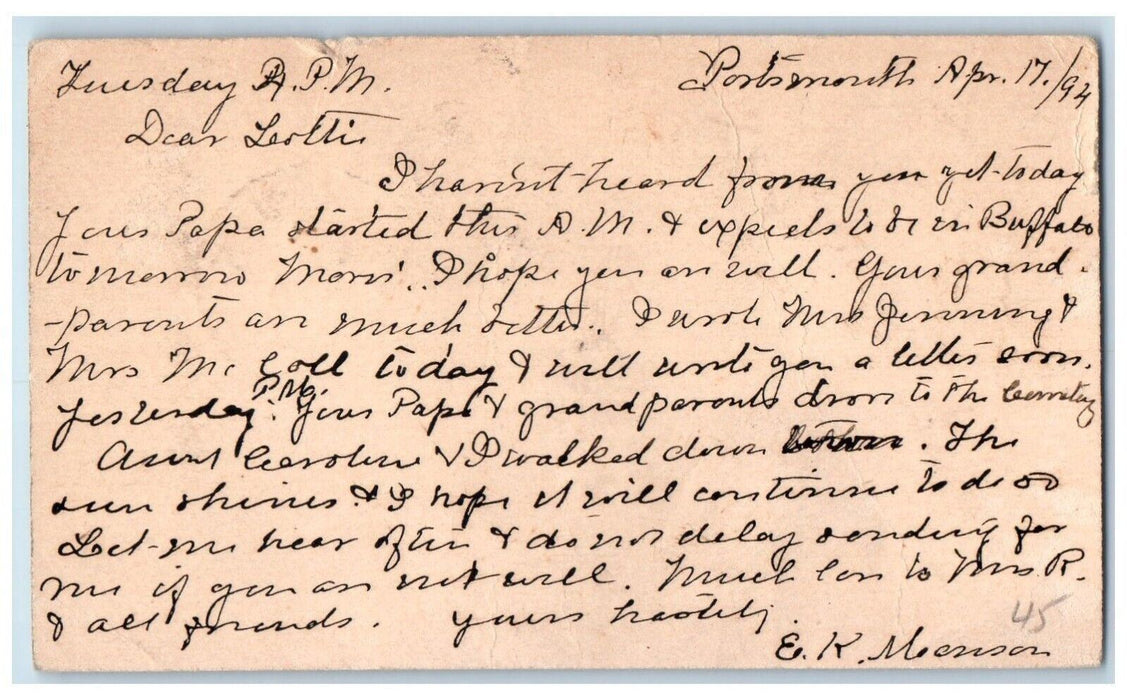 Tuesday P.M. Portsmouth Apr. 17./94
Dear Lottie
I havn't heard from you yet today
Your Papa started this A.M. & expects to be in Buffalo
tomorrow Morn'. I hope you are well. Your grand-
-parents are much better. I wrote Mrs Jenning &
Mrs Mc Coll today & will write you a letter soon.
Yesterday P.M. Your Papa & grandparents drove to the Cemetay
Aunt Caroline & I walked down. The
sun shines & I hope it will continue to do so
Let me hear often & do not delay sending for
me if you are not well. Much love to Mrs R.
& all friends. Yours hastily
45
E. K. Manson